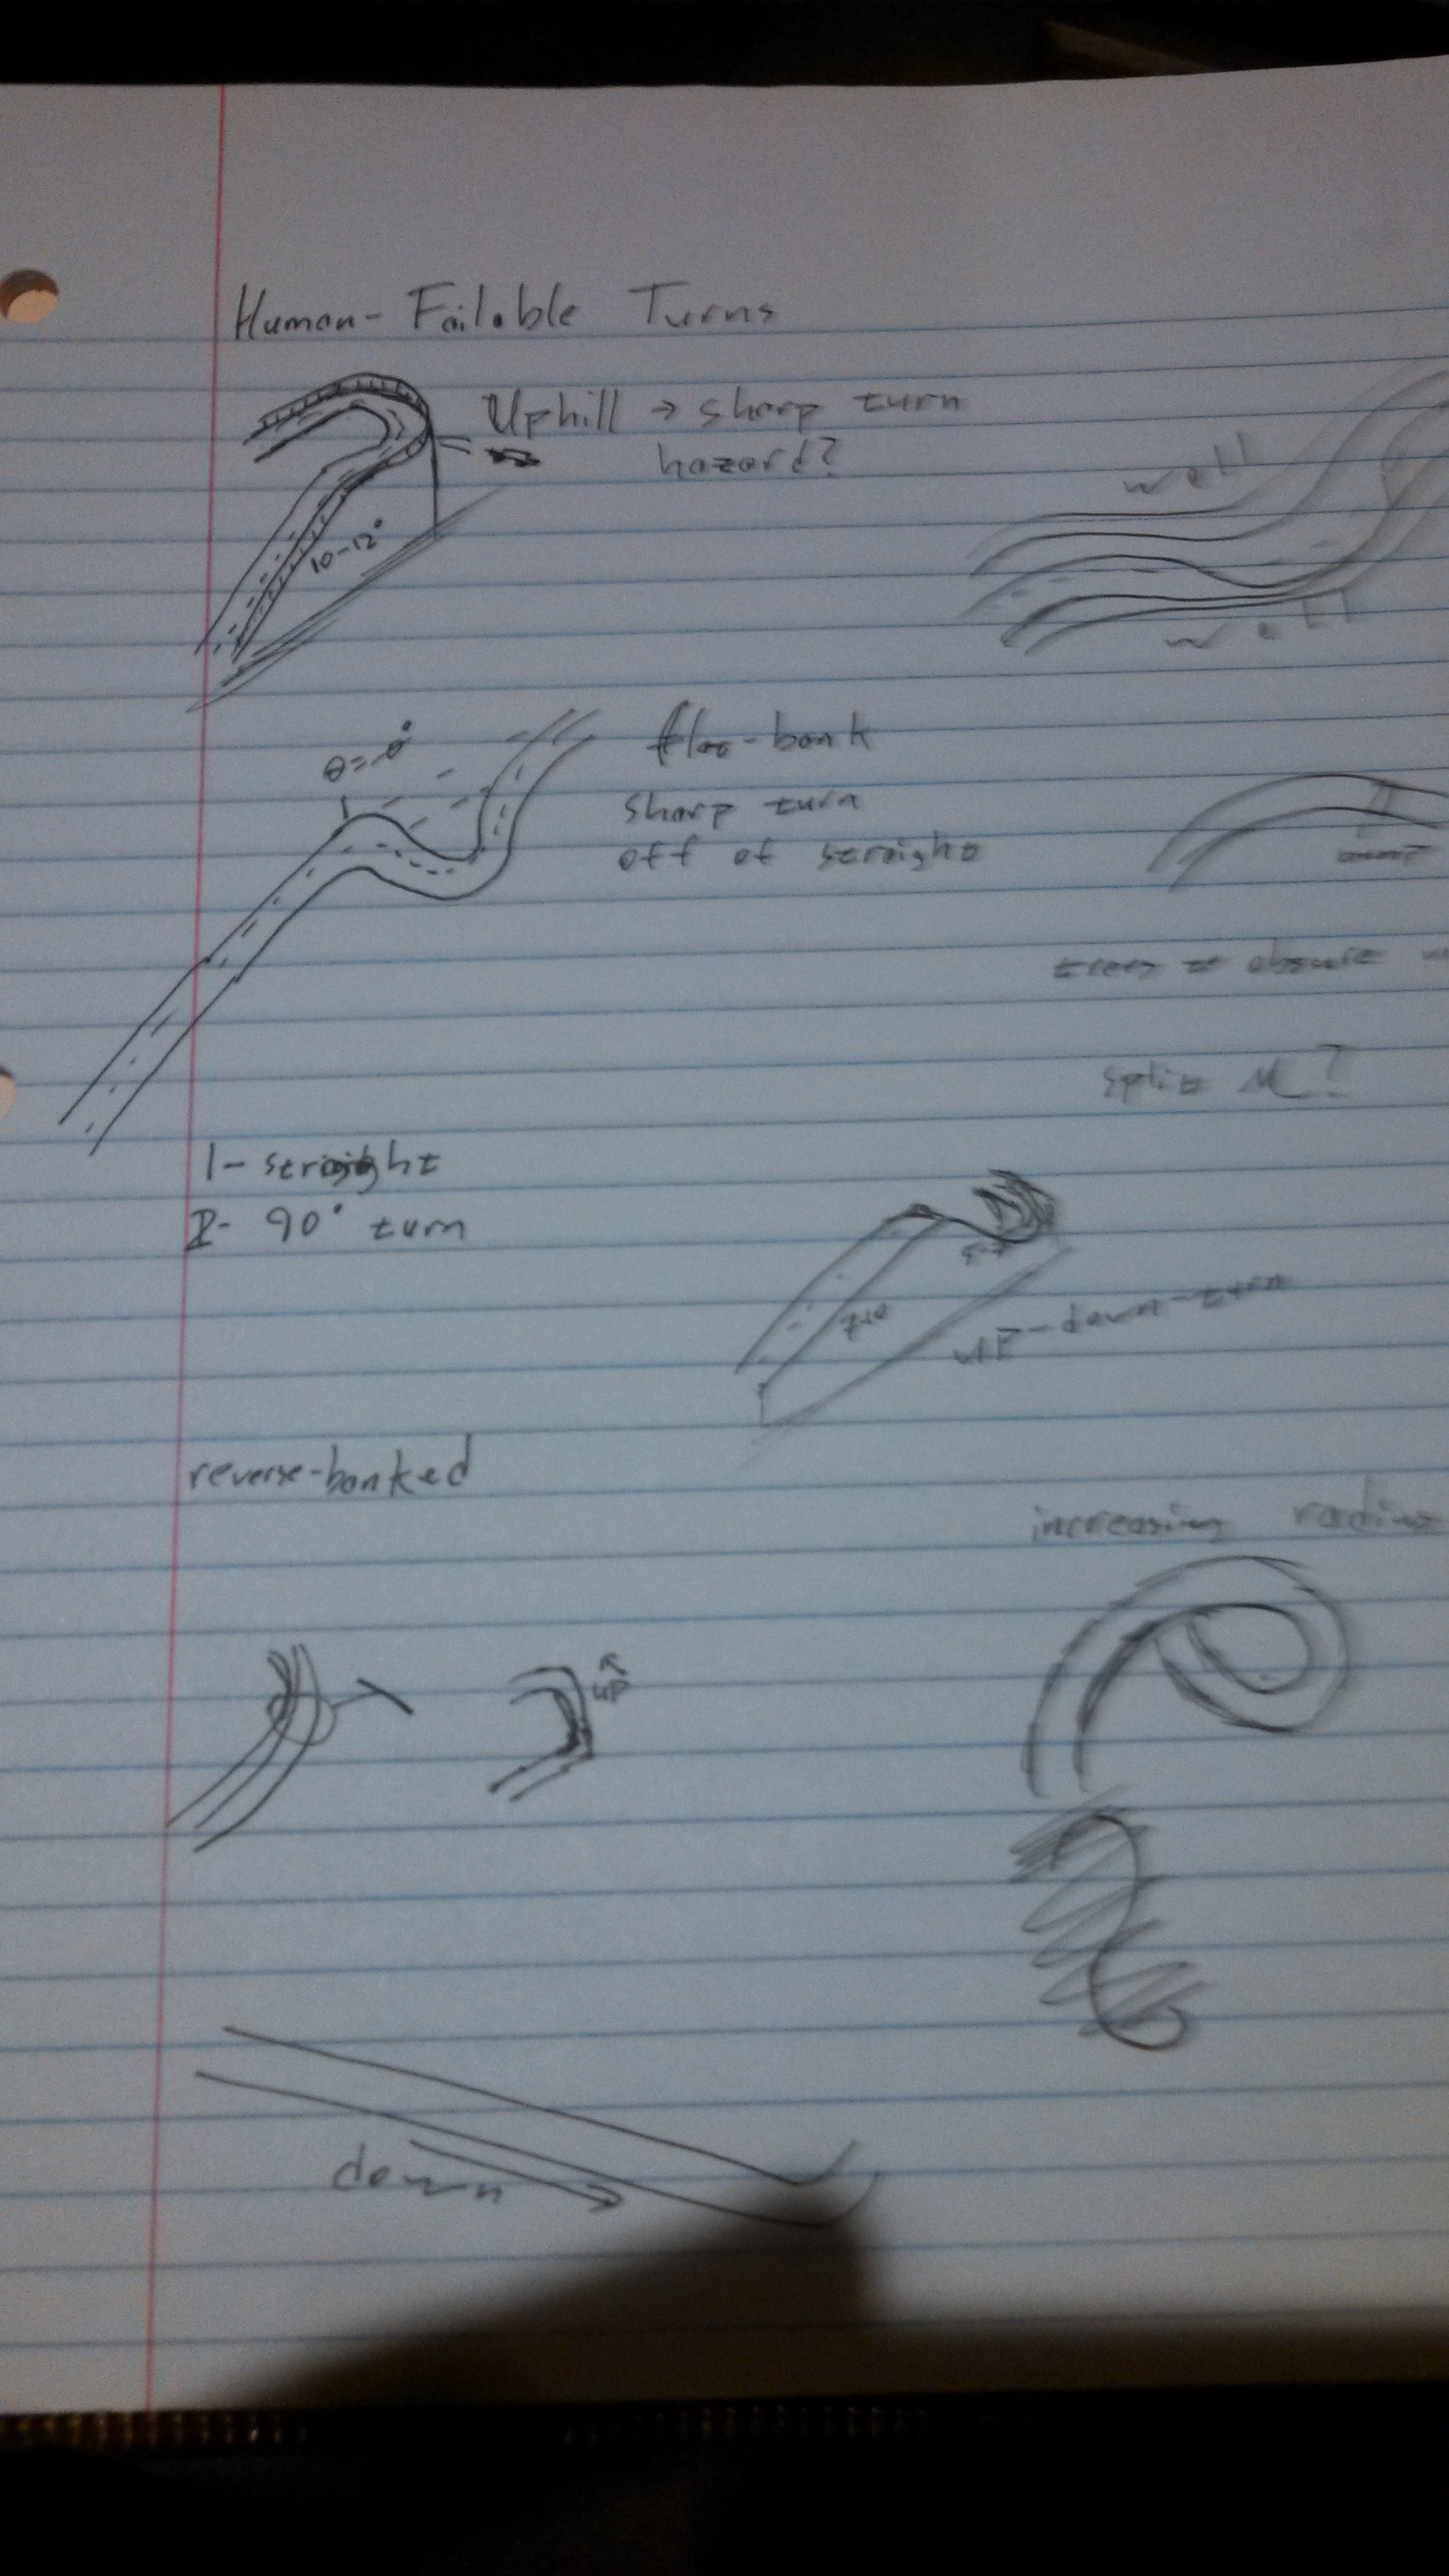 Human-Failable Turns
Uphill → sharp turn
hazard?
10-12°
wall
wall
flat-bank
sharp turn
off of straight
trees to obscure
split M?
I- straight
II- 90° turn
up-down-turn
reverse-banked
increasing radius
up
down